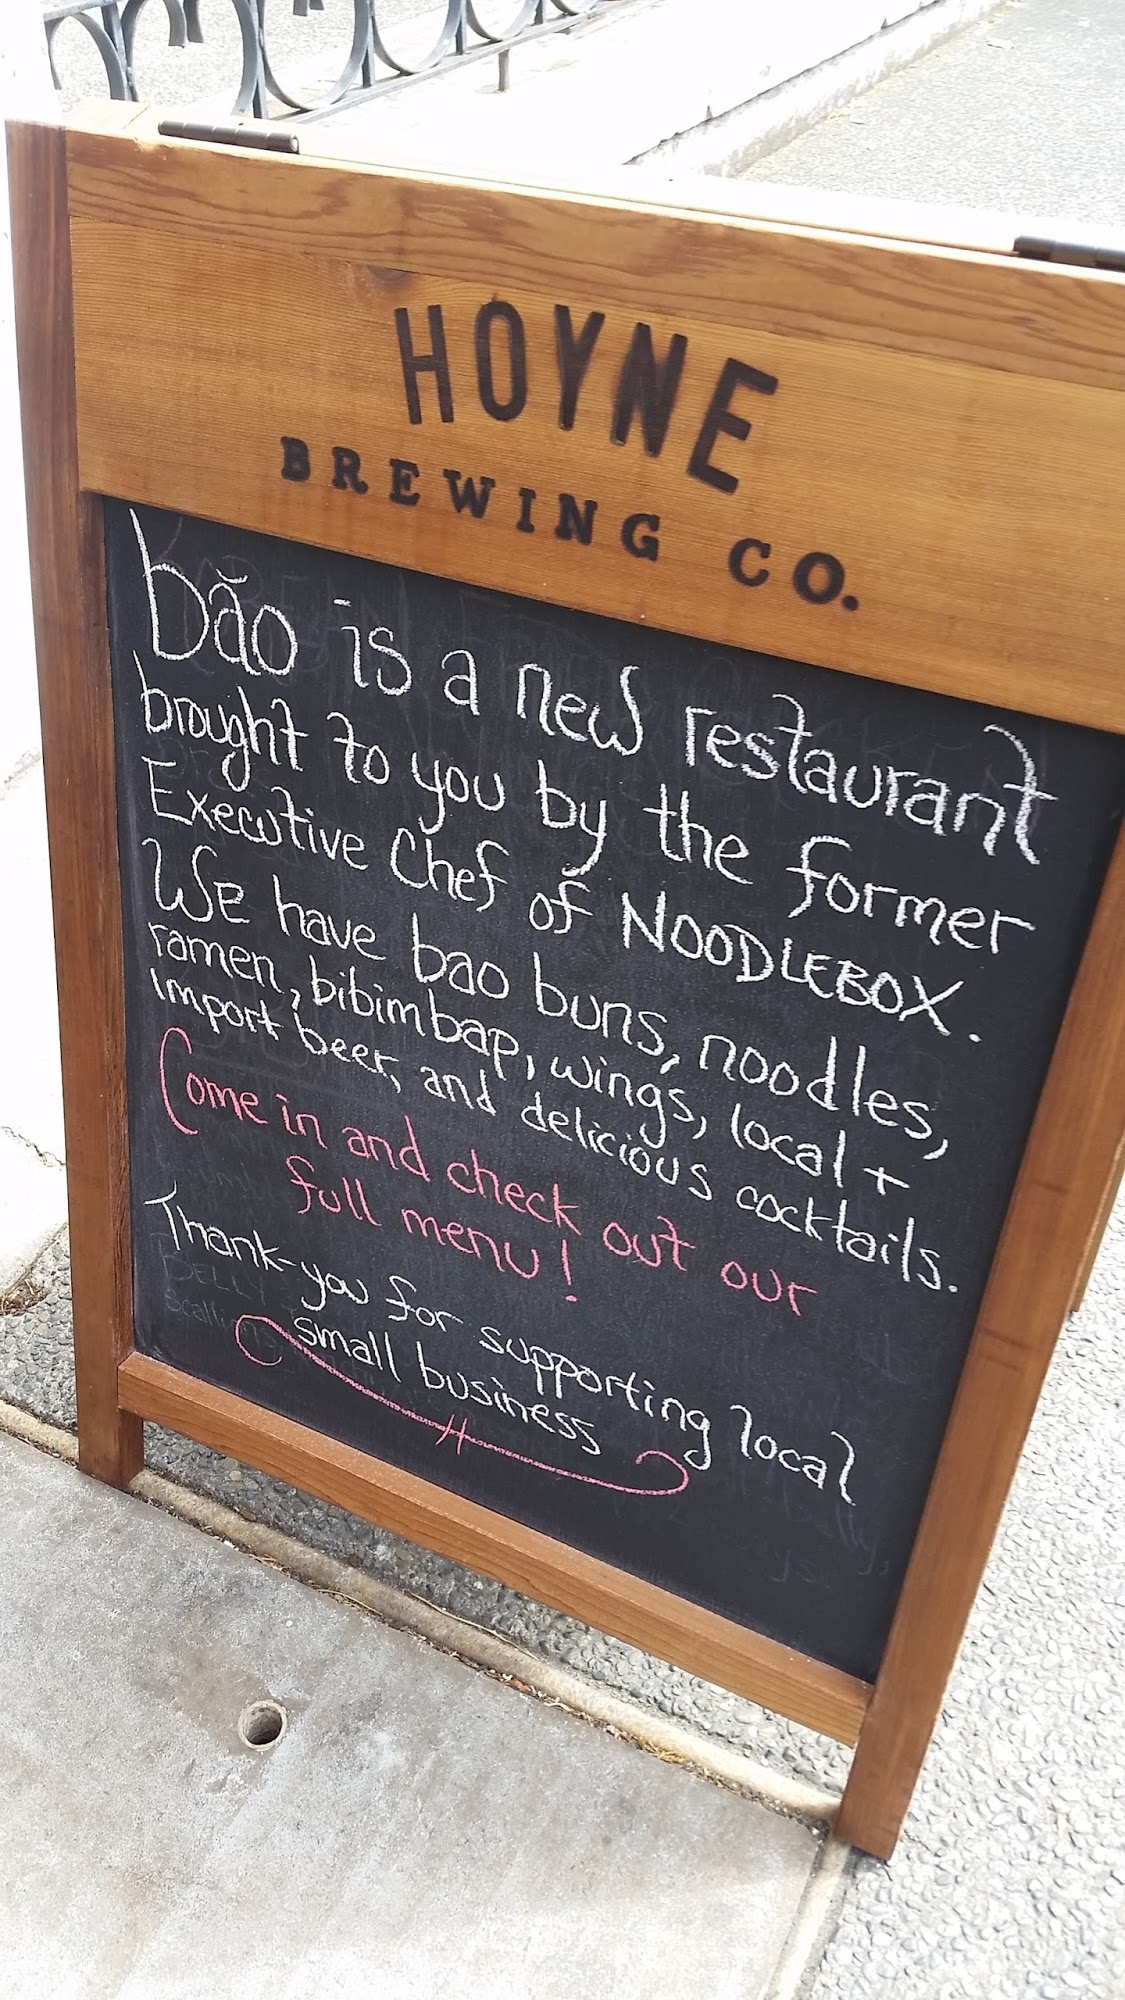 HOYNE
BREWING CO.
băo is a new restaurant
brought to you by the former
Executive Chef of NOODLEBOX.
We have bao buns, noodles,
ramen, bibimbap, wings, local +
import beer, and delicious cocktails.
Come in and check out our
full menu!
Thank-you for supporting local
small business